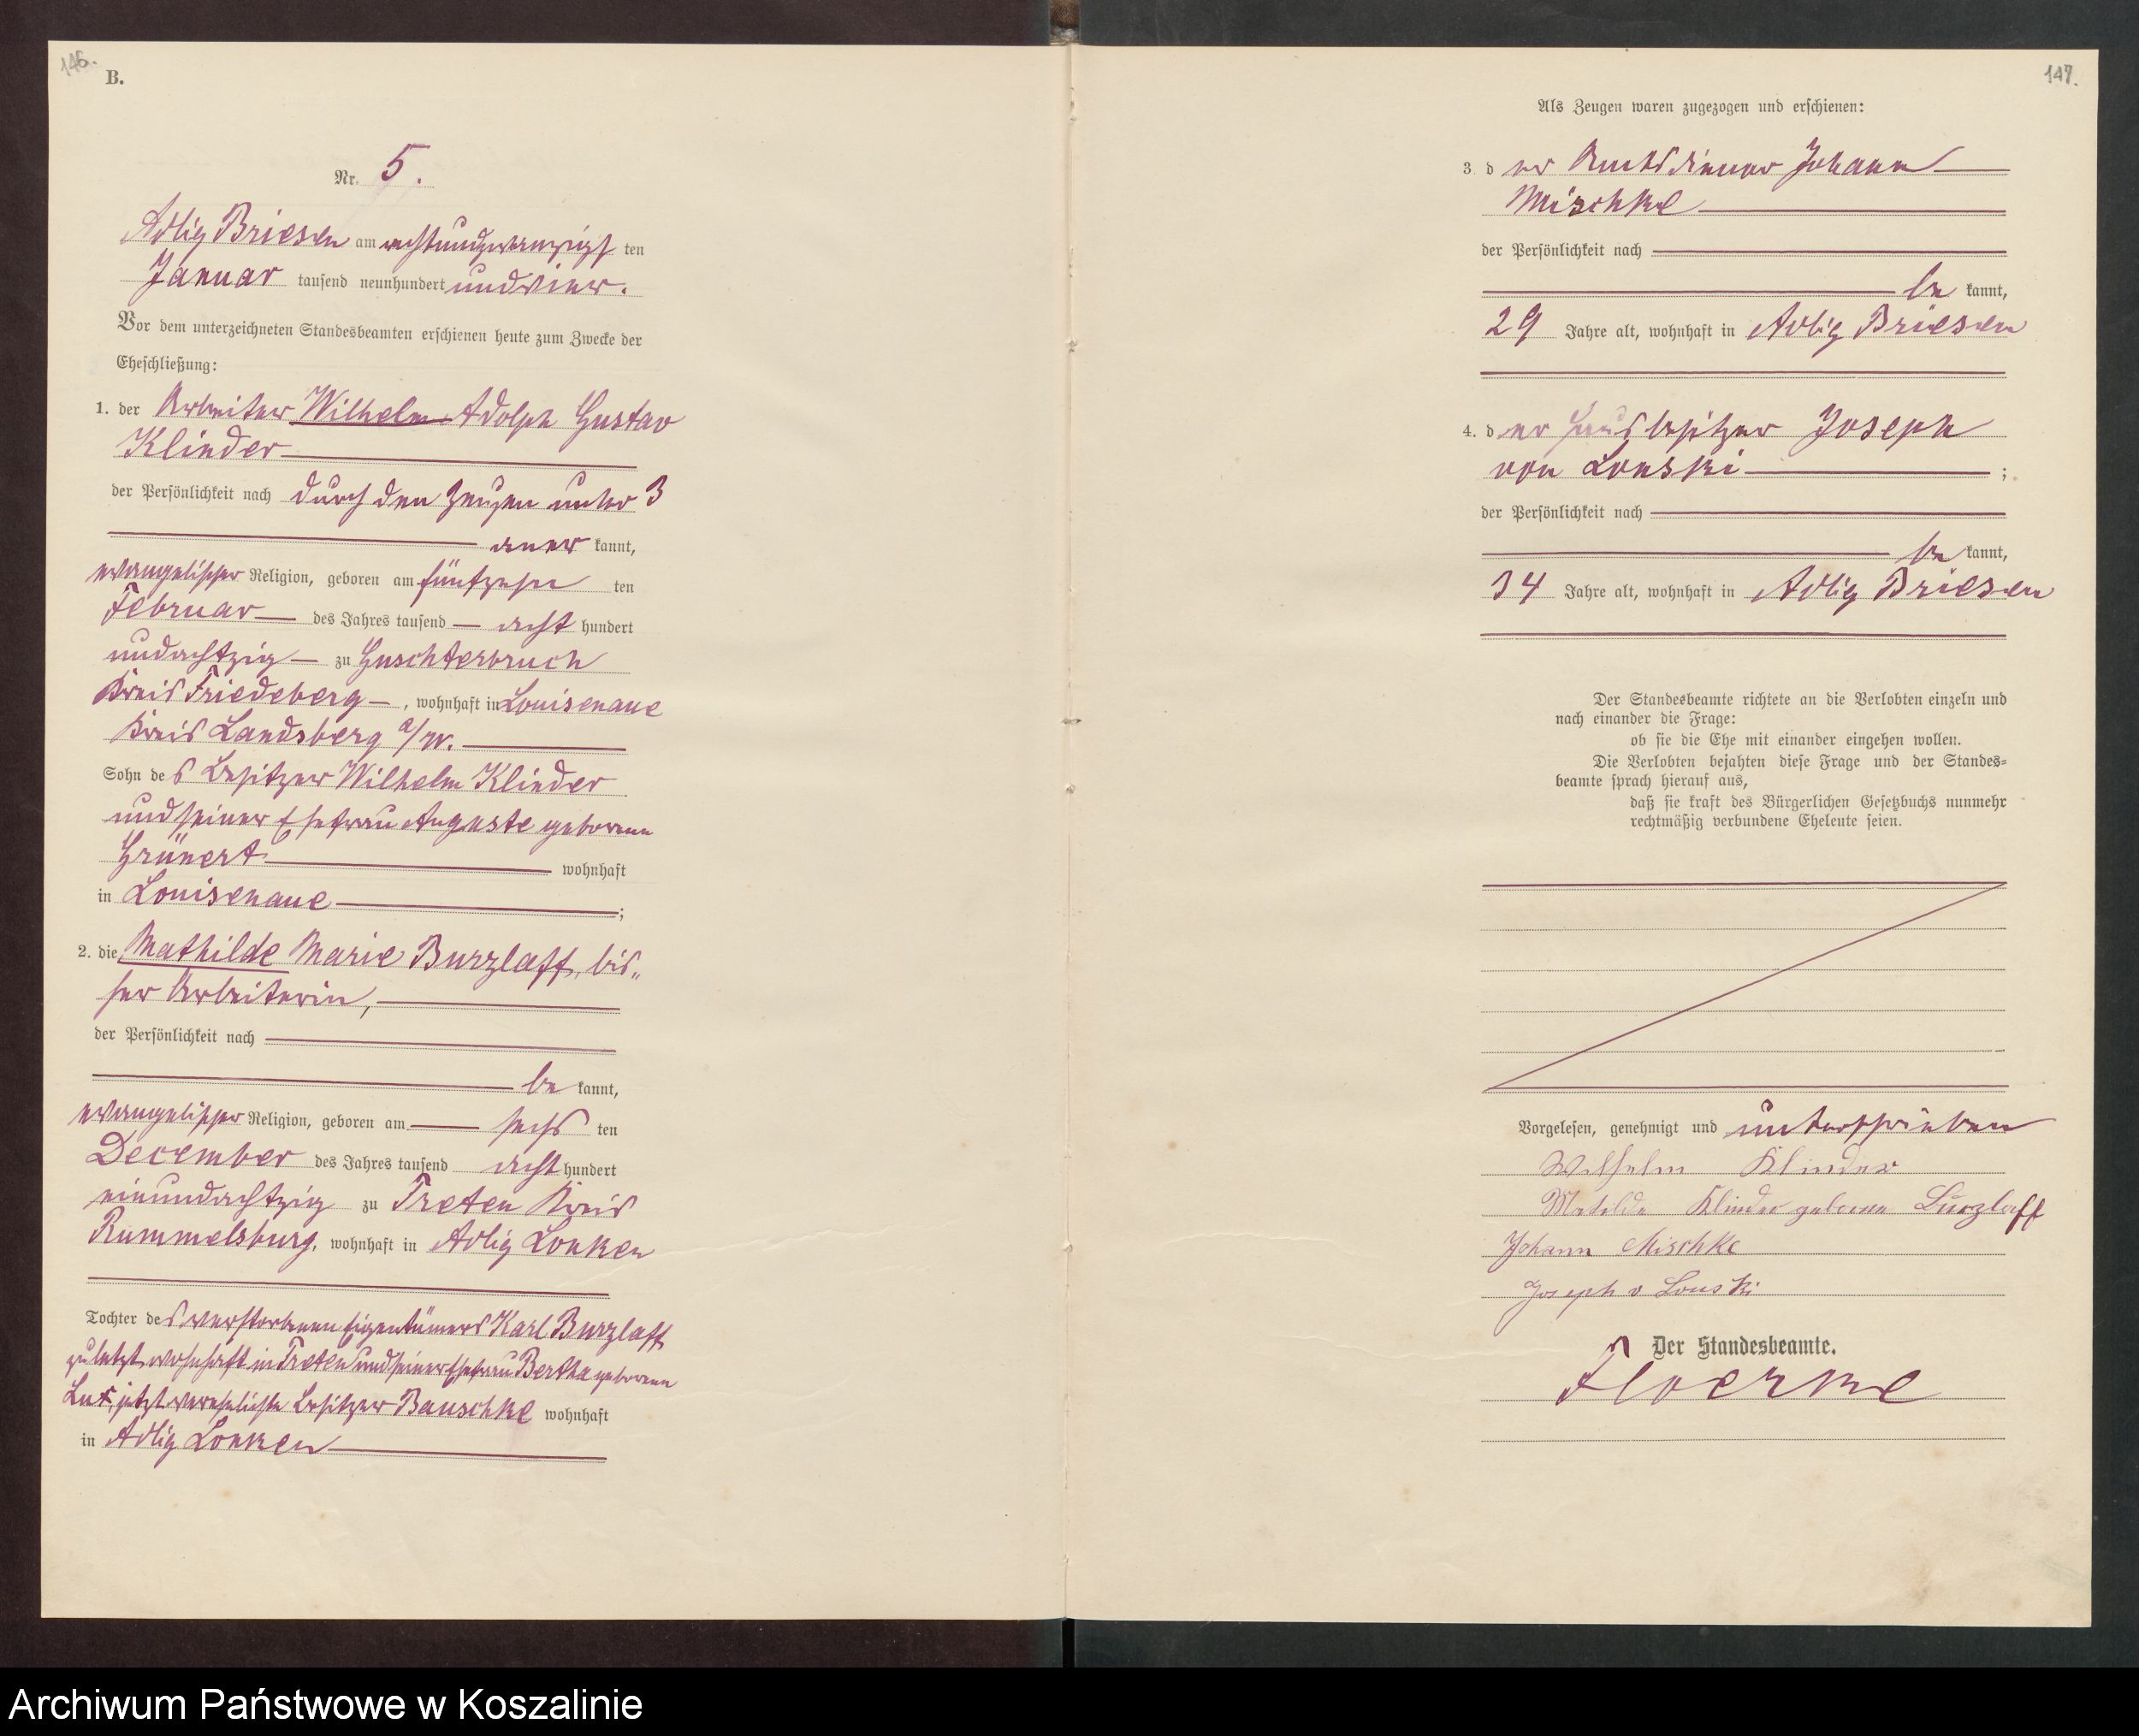 146.
B.
Nr. 5.
Adlig Briesen am achtundzwanzigs ten
Januar tausend neunhundert und vier.
Vor dem unterzeichneten Standesbeamten erschienen heute zum Zwecke der
Eheschließung:
1. der Arbeiter Wilhelm Adolph Gustav
Klinder
der Persönlichkeit nach durch den Zeugen unter 3
aner kannt,
evangelischer Religion, geboren am fünfzehn ten
Februar des Jahres tausend acht hundert
undachtzig zu Guschterbruch
Kreis Friedeberg, wohnhaft in Louisenaue
Kreis Landsberg a/W.
Sohn des Besitzer Wilhelm Klinder
und seiner Ehefrau Auguste geborene
Grünert wohnhaft
in Louisenaue;
2. die Mathilde Marie Burzlaff, bis„
her Arbeiterin,
der Persönlichkeit nach
be kannt,
evangelischer Religion, geboren am sechs ten
December des Jahres tausend acht hundert
einundachtzig zu Treten Kreis
Rummelsburg, wohnhaft in Adlig Lonken
Tochter des verstorbenen Eigentümers Karl Burzlaff
zuletzt wohnhaft in Treten und seiner Ehefrau Bertha geborene
jetzt verehelichte Besitzer Bauschke wohnhaft
in Adlig Lonken
147.
Als Zeugen waren zugezogen und erschienen:
3. d er Amtsdiener Johann
Mischke
der Persönlichkeit nach
be kannt,
29 Jahre alt, wohnhaft in Adlig Briesen
4. d er Hausbesitzer Joseph
von Lonski ;
der Persönlichkeit nach
be kannt,
34 Jahre alt, wohnhaft in Adlig Briesen
Der Standesbeamte richtete an die Verlobten einzeln und
nach einander die Frage:
ob sie die Ehe mit einander eingehen wollen.
Die Verlobten bejahten diese Frage und der Standes=
beamte sprach hierauf aus,
daß sie kraft des Bürgerlichen Gesetzbuchs nunmehr
rechtmäßig verbundene Eheleute seien.
Vorgelesen, genehmigt und unterschrieben
Wilhelm Klinder
Matilde Klinder geborene Burzlaff
Johann Mischke
Joseph v Lonski
Der Standesbeamte.
Floerke
Archiwum Państwowe w Koszalinie